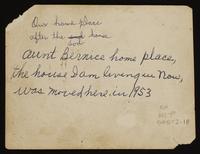 Our home place
after the sod house
sod
Aunt Bernice home place,
the house I am living in now,
was moved here in 1953